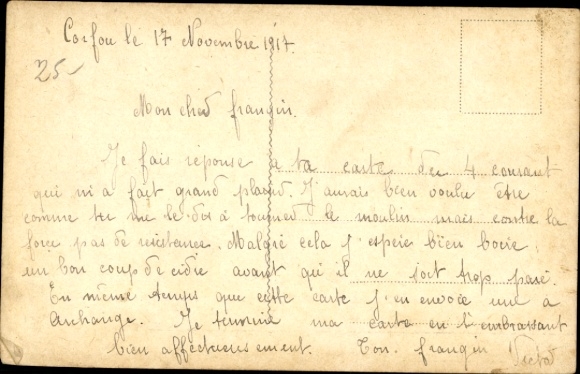 Corfou le 17 Novembre 1917.
25-
Mon cher frangin.
Je fais réponse a ta carte du 4 courant
qui m'a fait grand plaisir. J'aurais bien voulu être
comme tu me le dis à tourner le moulin mais contre la
force pas de resistance. Malgré cela j'espère bien boire
un bon coup de cidre avant qui il ne soit trop paré.
En même temps que cette carte j'en envoie une à
Archange. Je termine ma carte en t'embrassant
bien affectueusement. Ton frangin Victor